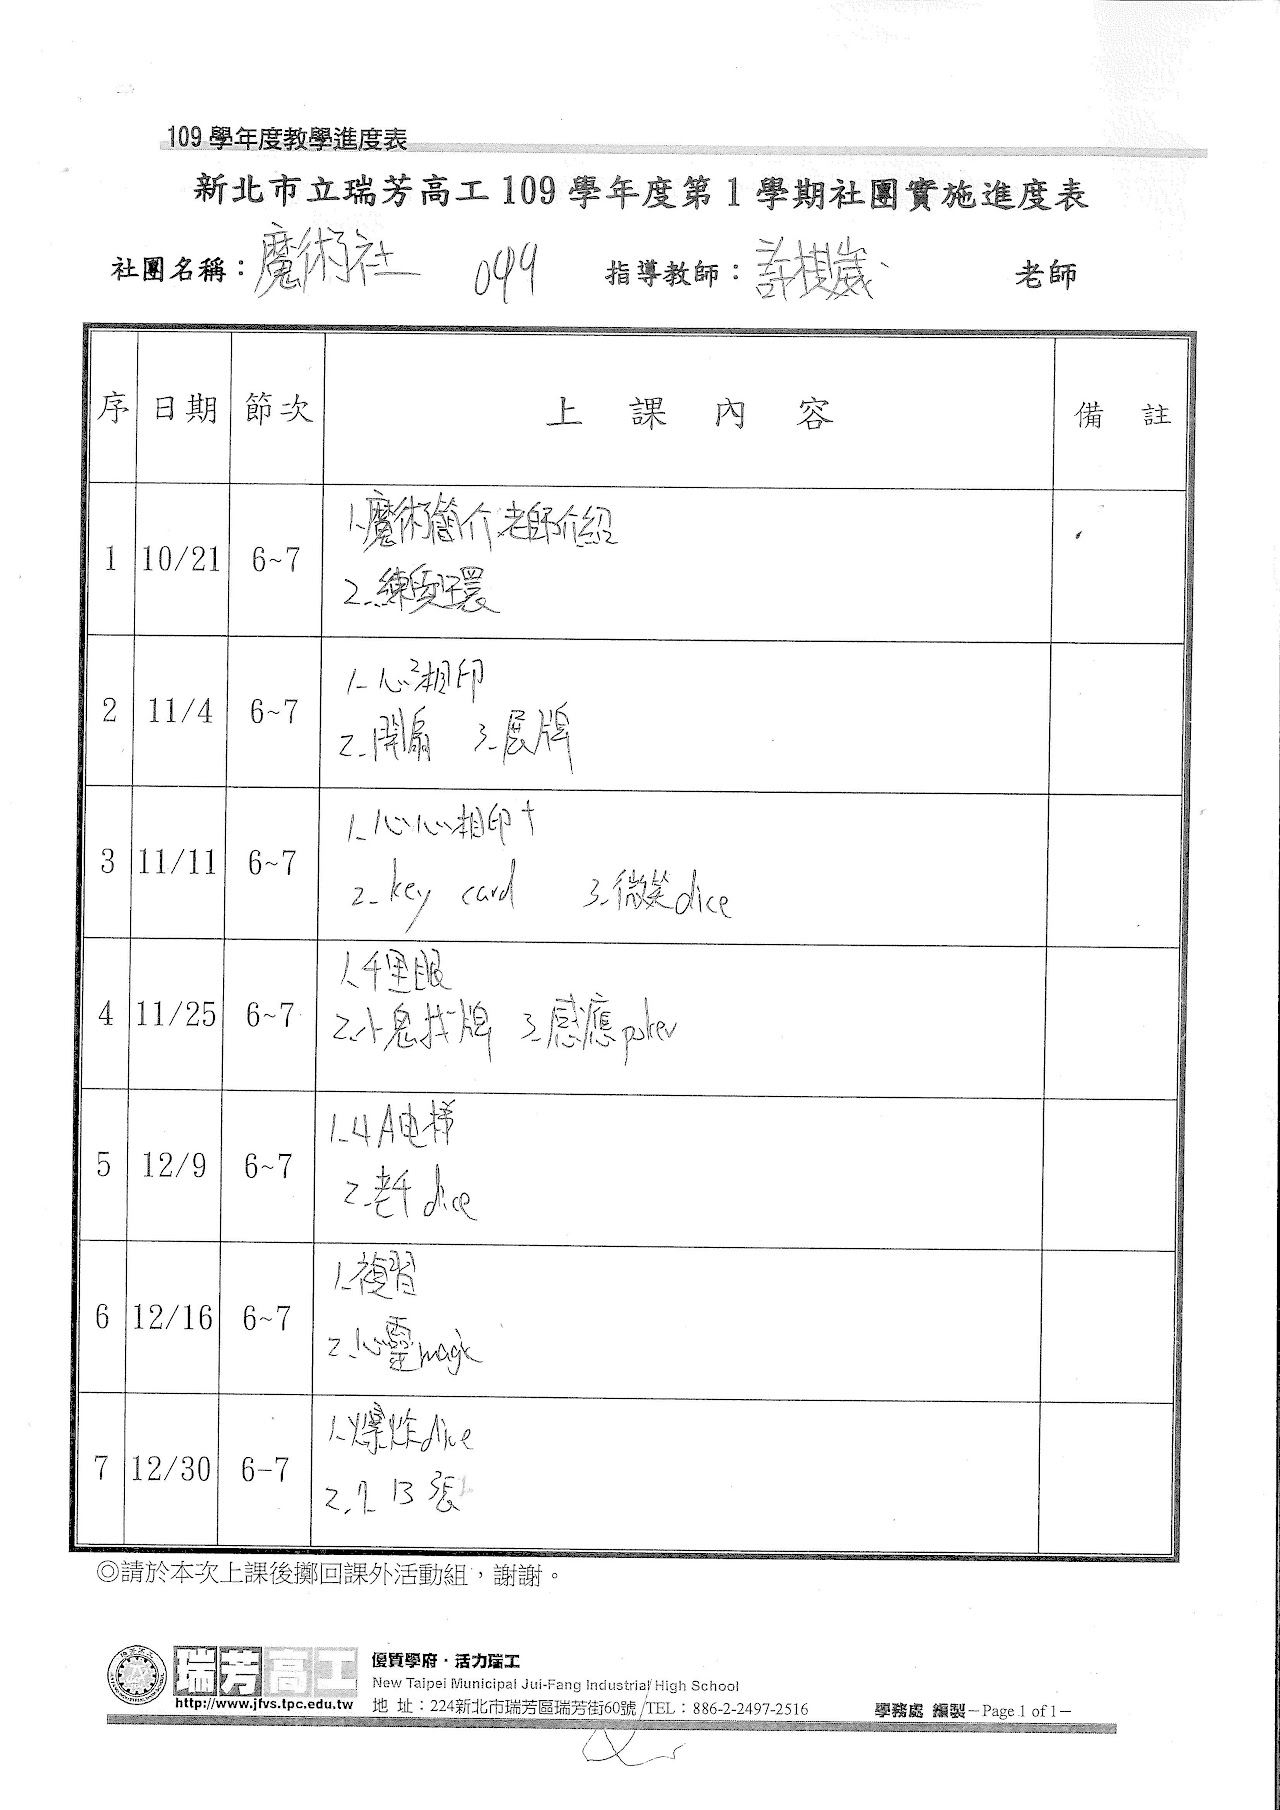 109 學年度教學進度表
新北市立瑞芳高工 109 學年度第 1 學期社團實施進度表
社團名稱：魔術社 099 指導教師：許棋崴 老師
序 日期 節次 上課內容 備註
1 10/21 6~7 1.魔術簡介 老師介紹
2.練愛環
2 11/4 6~7 1.心²相印
2.開扇 3.展牌
3 11/11 6~7 1.心心相印+
2.key card 3.微笑dice
4 11/25 6~7 1.千里眼
2.小鬼找牌 3.感應poker
5 12/9 6~7 1.4A电梯
2.老千dice
6 12/16 6~7 1.複習
2.心靈magic
7 12/30 6-7 1.爆炸dice
2. 13張
◎請於本次上課後擲回課外活動組，謝謝。
瑞芳高工
http://www.jfvs.tpc.edu.tw
優質學府‧活力瑞工
New Taipei Municipal Jui-Fang Industrial High School
地 址：224新北市瑞芳區瑞芳街60號/TEL：886-2-2497-2516
學務處 編製－Page 1 of 1－